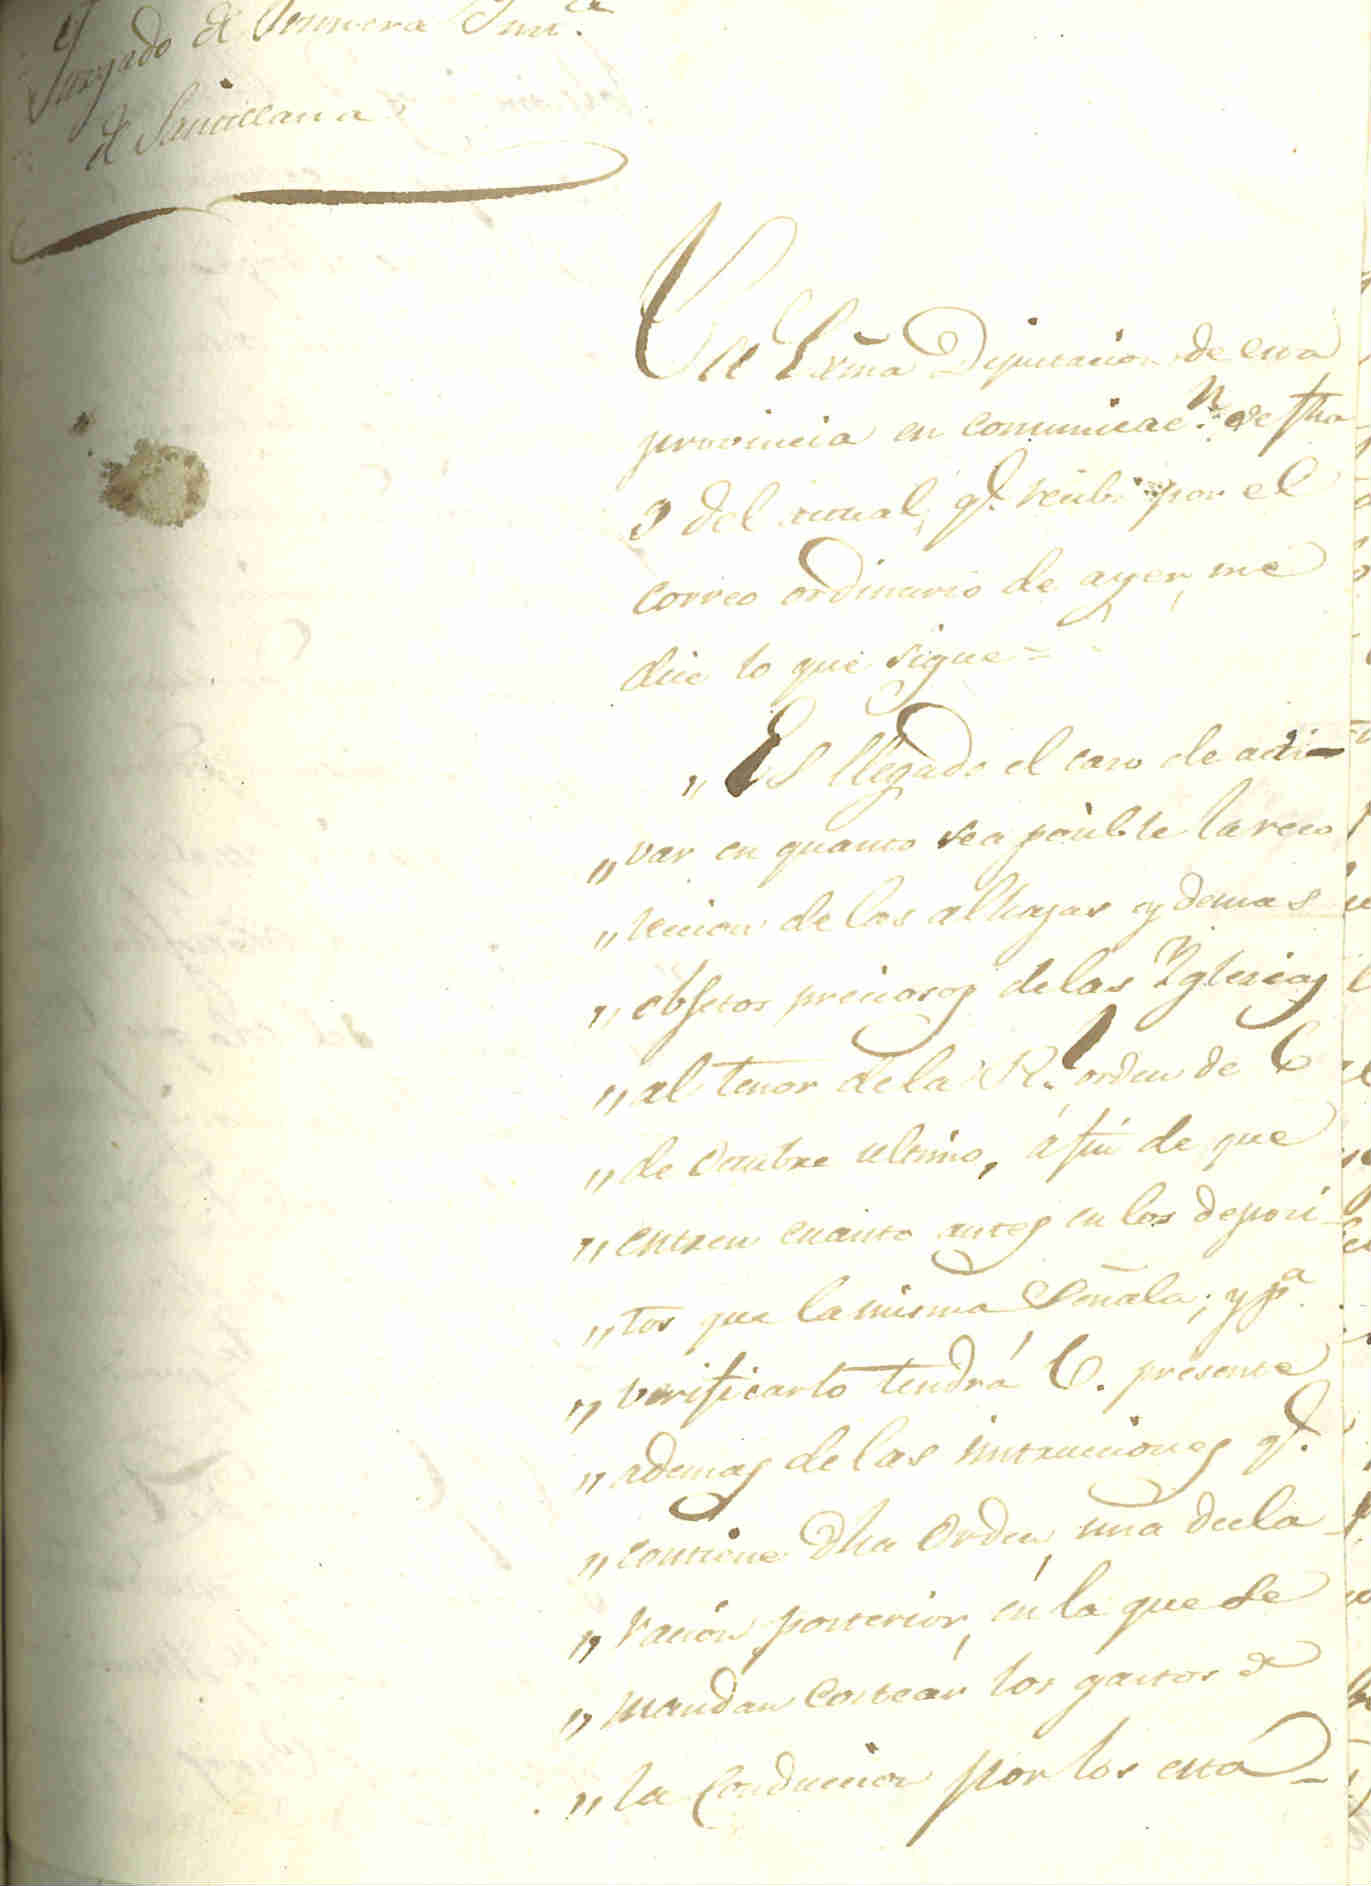 Juzgado de Primera Inst.ª
de Santillana
La Exma Diputacion de esta
provincia en comunicac.n de fha
3 del actual, q.e recibi por el
correo ordinario de ayer, me
dice lo que sigue=
„ Es llegado el caso de acti-
„ var en quanto sea posible la reco
„ leccion de las alhajas y demas
„ obgetos preciosos de las Yglesias
„ al tenor de la R.l orden de 6
„ de Octubre ultimo, á fin de que
„ entren cuanto antes en los deposi-
„ tos que la misma señala; y p.a
„ verificarlo tendrá V. presente
„ ademas de las instrucciones q.e
„ contiene dha orden, una decla-
„ racion posterior, en la que se
„ mandan costear los gastos de
„ la conduccion por los está-